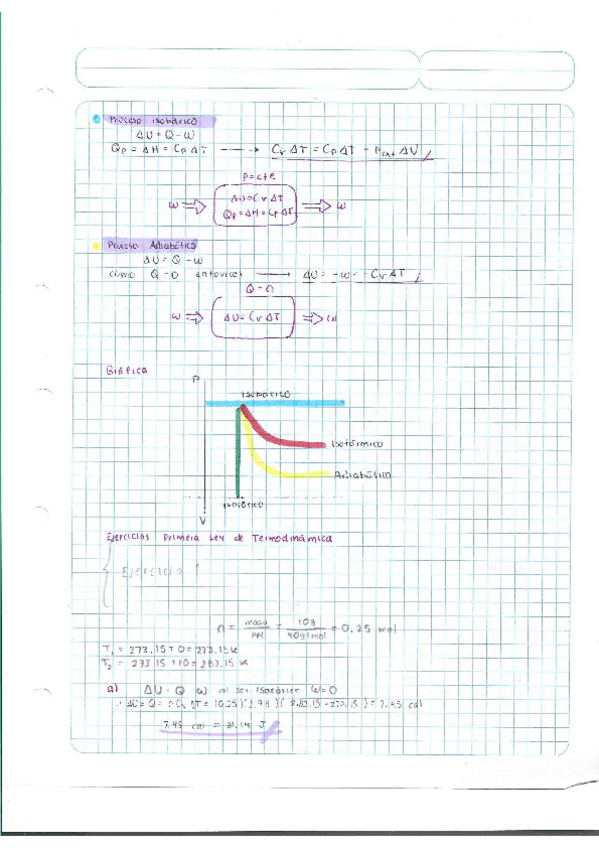 Proceso isobárico
ΔU = Q - W
Qp = ΔH = Cp ΔT → Cv ΔT = Cp ΔT - Pext ΔU
P = cte
W ⇒ ΔU = Cv ΔT ⇒ W
Qp = ΔH = Cp ΔT
Proceso Adiabático
ΔU = Q - W
como Q = 0 entonces → ΔU = -W = -Cv ΔT
Q = 0
W ⇒ ΔU = Cv ΔT ⇒ W
Gráfica
P
Isobárico
Isotérmico
Adiabático
V
Ejercicios Primera Ley de Termodinámica
Ejercicio 1
n = masa / PM = 10g / 40g/mol = 0.25 mol
T1 = 273.15 + 0 = 273.15 K
T2 = 273.15 + 10 = 283.15 K
a) ΔU = Q - W al ser isocórico W = 0
∴ ΔU = Q = n Cv ΔT = (0.25)(2.98)(283.15 - 273.15) = 7.45 cal
7.45 cal = 31.14 J